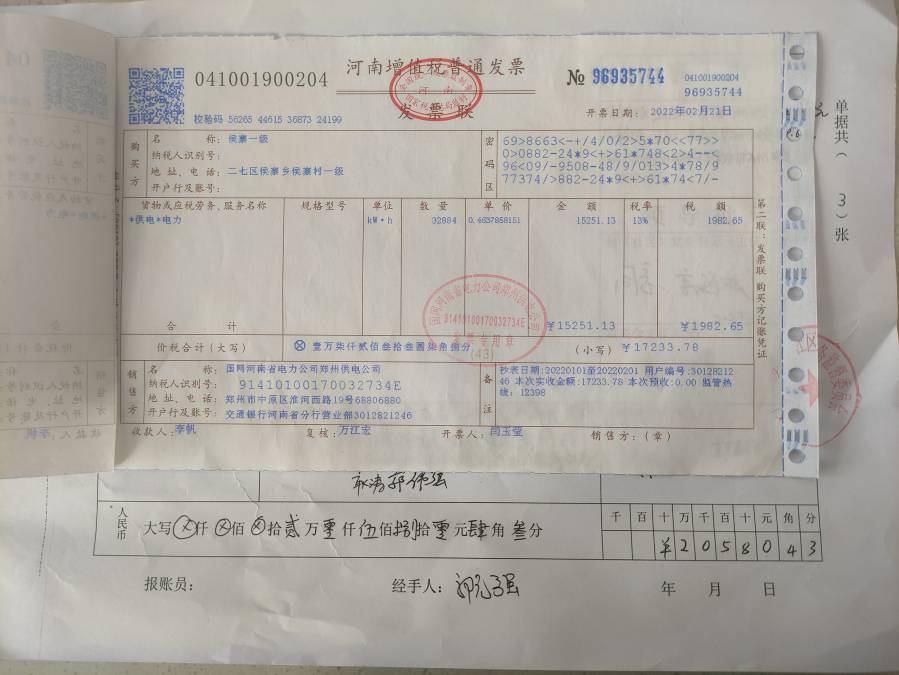 河南增值税普通发票
发票联
041001900204
№ 96935744
041001900204
96935744
校验码 56265 44615 36873 24199
开票日期: 2022年02月21日
购买方
名称: 侯寨一级
纳税人识别号:
地址、电话: 二七区侯寨乡侯寨村一级
开户行及账号:
密码区
69>8663<-+/4/0/2>5*70<<77>>
0>0882-24*9<+>61*748<2>4--<
96<09/-9508-48/9/013>4*78/9
77374/>882-24*9<+>61*74<7/-
货物或应税劳务、服务名称 规格型号 单位 数量 单价 金额 税率 税额
*供电*电力 kW·h 32884 0.4637858151 15251.13 13% 1982.65
合计 ¥15251.13 ¥1982.65
价税合计(大写) ⊗壹万柒仟贰佰叁拾叁圆柒角捌分 (小写) ¥17233.78
销售方
名称: 国网河南省电力公司郑州供电公司
纳税人识别号: 91410100170032734E
地址、电话: 郑州市中原区淮河西路19号68806880
开户行及账号: 交通银行河南省分行营业部3012821246
备注
抄表日期:20220101至20220201 用户编号:30128212
46 本次实收金额:17233.78 本次预收:0.00 监管热
线: 12398
收款人: 李帆 复核: 万江宏 开票人: 闫玉莹 销售方:(章)
第二联:发票联 购买方记账凭证
91410100170032734E
(43)
单据共( 3 )张
人民币
大写⊗仟⊗佰⊗拾贰万零仟伍佰捌拾零元肆角叁分
千 百 十 万 千 百 十 元 角 分
¥ 2 0 5 8 0 4 3
报账员: 经手人: 年 月 日